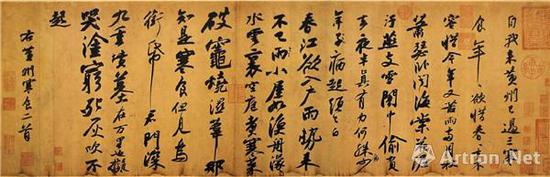 自我來黃州已過三寒
食年年欲惜春春去不
容惜今年又苦雨兩月秋
蕭瑟卧聞海棠花泥
汙燕支雪闇中偷負
去夜半真有力何殊少
年子病起頭已白
春江欲入戶雨勢來
不已雨小屋如漁舟濛濛
水雲裏空庖煮寒菜
破竈燒濕葦那
知是寒食但見烏
銜帋君門深
九重墳墓在萬里也擬
哭塗窮死灰吹不
起
右黃州寒食二首
Artron.Net